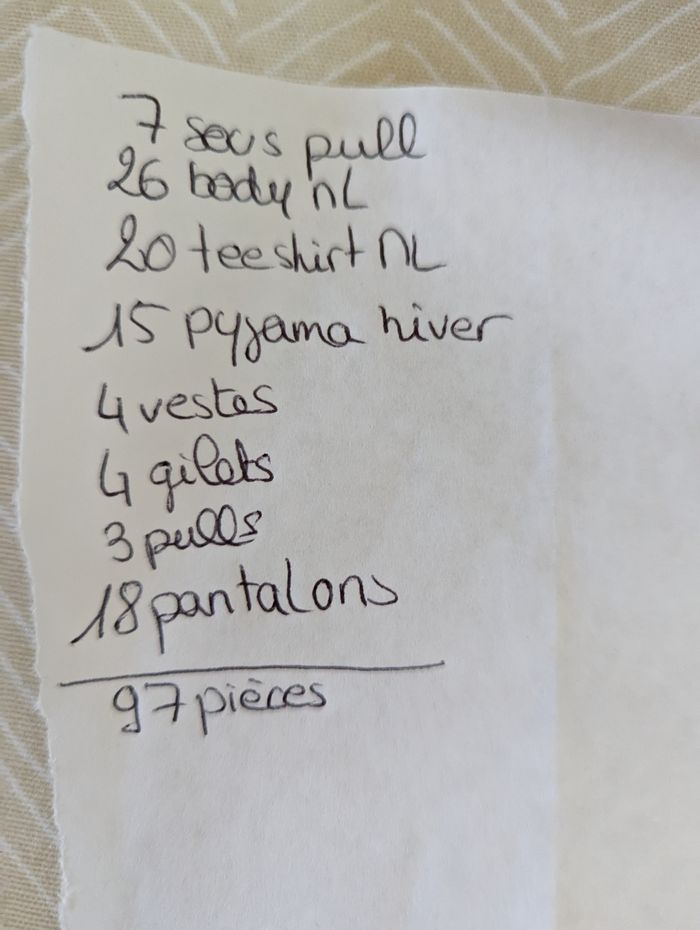 7 sous pull
26 body nL
20 teeshirt nL
15 pyjama hiver
4 vestes
4 gilets
3 pulls
18 pantalons
97 pièces